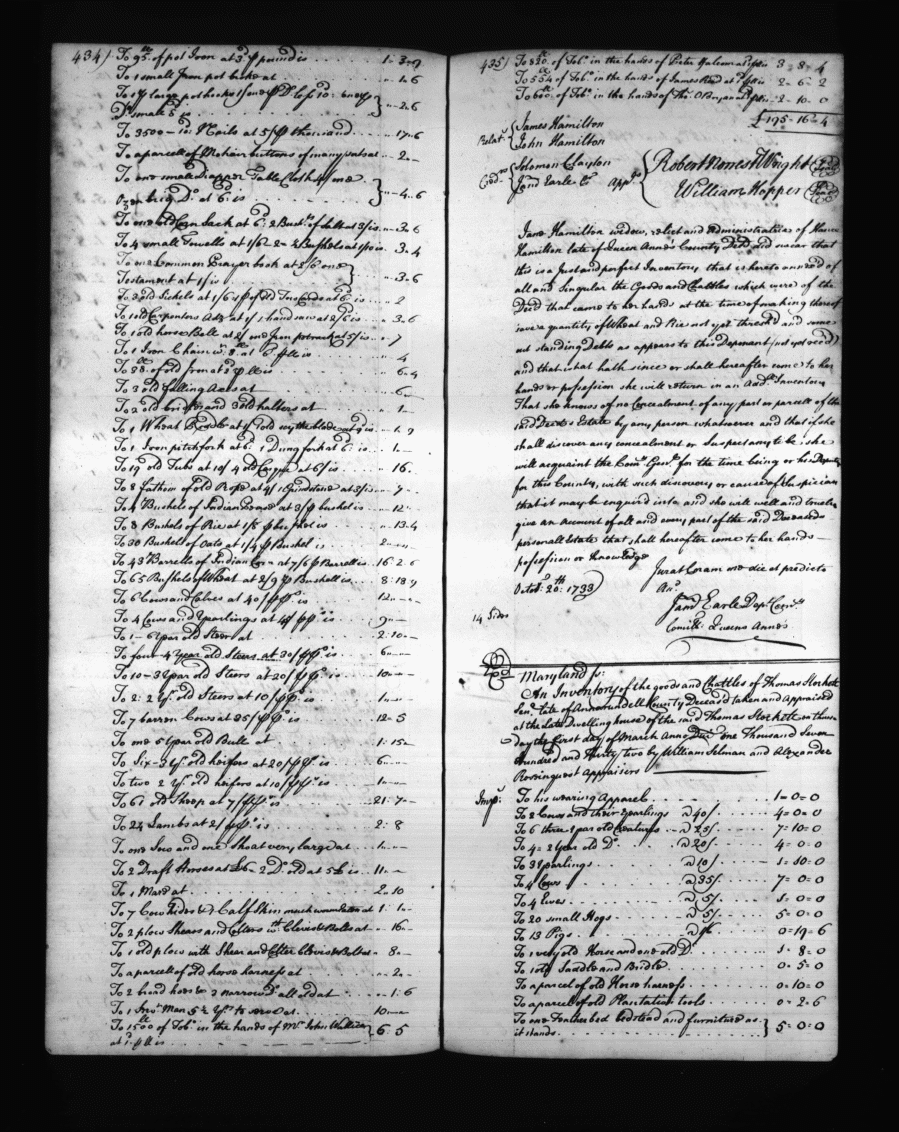 434)
To 95 lb of pot Iron at 3d p pound is 1: 3=9
To 1 small Iron pot bake at " 1=6
To 1 large pot hooks 1 one p Do
Do small 5 is } "=2=6
To 3500=10d Nails at 5/ p thousand " 17=6
To a parcell of Mohair buttons of many sorts at " 2=
To one small Diaper Table Cloth & one
Ozenbrig Do at 6d is } "=4=6
To one old Corn Sack at 6d: 2 Bushs of Salt at 3/ is " 3=6
To 4 small Towells at 1/6 2 Bushels at is " 3=4
To one Common Prayer book at 2/6 one
Testament at 1/ is } "=3=6
To 3 old Sickels at 1/6 is " 2
To 1 old Carpenters Adz at 1/ 1 hand saw at 2/6 is " 3=6
To 1 old horse Bell at 2/ one Iron pot rack at 5/ is " 7
To 1 Iron Chain wt. 8 lb at 6d p lb is " 4
To 38 lb of old Iron at 2d p lb is " 6=4
To 3 old falling Axes at " 6=
To 2 old bridles and 3 old halters at " 1=
To 1 Wheat Riddle at 1/ 1 old scythe blade at 9d is " 1=9
To 1 Iron pitchfork at 6d 1 Dung fork at 6d is " 1=
To 19 old Tubs at 10/ 4 old Casque at 6/ is " 16=
To 8 fathom of old Rope at 4/ 1 Grindstone at 3/ is " 7=
To 4 Bushels of Indian Beans at 3/ p bushel is " 12=
To 8 Bushels of Rie at 1/8 p bushel is " 13=4
To 30 Bushels of Oats at 1/4 p Bushel is 2="="
To 43 Barrells of Indian Corn at 7/6 p Barrell is 16=2=6
To 65 Bushels of Wheat at 2/9 p Bushell is 8=18=9
To 6 Cows and Calves at 40/ p ps. is 12="="
To 4 Cows and Yearlings at 45/ p ps is 9="="
To 1=6 Year old Steer at 2=10="
To four 4 Year old Steers at 30/ p ps is 6="="
To 10=3 Year old Steers at 20/ p ps is 10="="
To 2: 2 Yr. old Steers at 10/ p ps is 1="="
To 7 barren Cows at 35/ p ps is 12=5
To one 5 Year old Bull at 1: 15="
To Six=3 Yr. old heifers at 20/ p ps is 6="="
To two 2 Yr. old heifers at 10/ p ps is 1="="
To 61 old Sheep at 7/ p ps is 21: 7="
To 24 Lambs at 2/ p ps is 2: 8
To one Sow and one Shoat very large at 1="="
To 2 Draft Horses at £6=2 Do old at 5£ is 11="="
To 1 Mare at 2=10
To 7 Cow hides & 2 Calf Skin much worm eaten at 1: 1="
To 2 plow Shears and Colters wth Clevis & Bolts at " 16="
To 1 old plow with Shear and Colter Clevis & Bolt at " 8="
To a parcell of old horse harness at "=2="
To 2 broad hoes & 2 narrow Do all old at " 1: 6
To 1 Servt. Man 5½ Yrs. to serve at 10="="
To 1500 lb of Tobo. in the hands of Mr. John
at 1d p lb is } 6=5
435)
To 820 lb of Tobo. in the hands of Peter at pr. is 3=8=4
To 554 lb of Tobo. in the hands of James Reed at pr. is 2=6=2
To 600 lb of Tobo. in the hands of Tho. O Bryan at pr. is 2=10=0
£195=16=4
Relat. { James Hamilton
John Hamilton
Cred.rs { Solomon Clayton
Jams Earle Appd. { Robert Norrest Wright
William Hopper
Jane Hamilton widow, relict and administratrix of
Hamilton late of Queen Anne's County Decd and swear that
this is a Just and perfect Inventory that is hereto annexed of
all and Singular the Goods and Chattles which were of the
Decd that came to her hands at the time of making thereof
save a quantity of Wheat and Rie not yet thresh'd and some
out standing Debts as appears to this Deponant (not yet recd)
and that what hath since or shall hereafter come to her
hands or possession she will return in an Add. Inventory
That she knows of no Concealment of any part or parcell of the
said Decd's Estate by any person whatsoever and that if she
shall discover any concealment or Suspect any to be she
will acquaint the Comry. Genrl. for the time being or his Deputy
for this County, with such discovery or cause of Suspicion
that it may be enquir'd into and she will well and truely
give an account of all and every part of the said Deceaseds
personall Estate that shall hereafter come to her hands
possession or knowledge Jurat Coram me die et predicto
Octobr. 20th: 1733) An.
Jams Earle Dept. Comry.
Comit: Queens Anne's
14 Sides
Maryland ss:
An Inventory of the goods and Chattles of Thomas Stockett
Senr. late of Annarundell County Deceas'd taken and Appraised
at the Late Dwelling house of the said Thomas Stockett on thurs
day the first day of March Anno Dm. one Thousand Seven
hundred and thirty two by William Selman and Alexander
Rosinquest Appraisers
Impr. To his wearing Apparel 1=0=0
To 2 Cows and their Yearlings @ 40/ 4=0=0
To 6 three Year old Creatures @ 25/ 7=10=0
To 4=2 Year old Do. @ 20/ 4=0=0
To 3 Yearlings @ 10/ 1=10=0
To 4 Cows @ 35/ 7=0=0
To 4 Ewes @ 5/ 1=0=0
To 20 small Hogs @ 5/ 5=0=0
To 13 Pigs @ 1/6 0=19=6
To 1 very old Horse and one old Do. 1=8=0
To 1 old Saddle and Bridle 0=5=0
To a parcel of old Horse harness 0=10=0
To a parcel of old Plantation tools 0=2=6
To one Feather bed bedstead and furniture as
it stands } 5=0=0